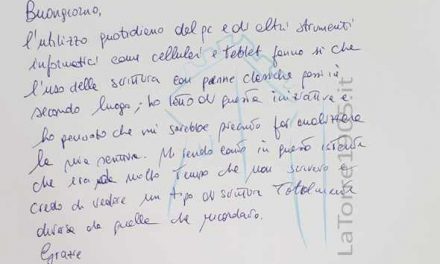 Buongiorno,
l'utilizzo quotidiano del pc e di altri strumenti
informatici come cellulari e tablet fanno sì che
l'uso della scrittura con penne classiche passi in
secondo luogo; ho letto di questa iniziativa e
ho pensato che mi sarebbe piaciuto far analizzare
la mia scrittura. Mi rendo conto in questo istante
che era da molto tempo che non scrivevo e
credo di vedere un tipo di scrittura totalmente
diversa da quella che ricordavo.
Grazie
LaTorre1905.it